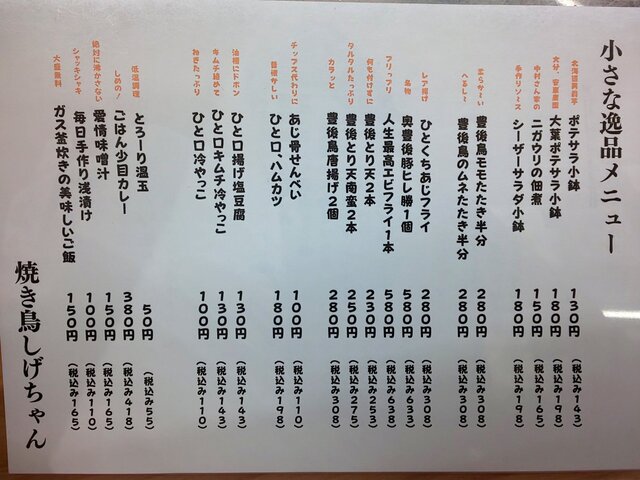 小さな逸品メニュー
ポテサラ小鉢 130円 (税込み143)
大葉ポテサラ小鉢 180円 (税込み198)
中村さん家の
ニガウリの佃煮 150円 (税込み165)
手作りソース
シーザーサラダ小鉢 180円 (税込み198)
柔らか~い
豊後鳥モモたたき半分 280円 (税込み308)
へるし~
豊後鳥のムネたたき半分 280円 (税込み308)
レア揚げ
ひとくちあじフライ 280円 (税込み308)
名物
奥豊後豚ヒレ勝1個 580円 (税込み633)
プリップリ
人生最高エビフライ1本 580円 (税込み638)
何も付けずに
豊後とり天2本 230円 (税込み253)
タルタルたっぷり
豊後とり天南蛮2本 250円 (税込み275)
カラッと
豊後鳥唐揚げ2個 280円 (税込み308)
チップス代わりに
あじ骨せんべい 100円 (税込み110)
昔懐かしい
ひと口、ハムカツ 180円 (税込み198)
油槽にドボン
ひと口揚げ塩豆腐 130円 (税込み143)
キムチ絡めて
ひと口キムチ冷やっこ 130円 (税込み143)
ねぎたっぷり
ひと口冷やっこ 100円 (税込み110)
低温調理
とろーり温玉 50円 (税込み55)
しめの!
ごはん少目カレー 380円 (税込み418)
絶対に沸かさない
愛情味噌汁 150円 (税込み165)
シャッキシャキ
毎日手作り浅漬け 100円 (税込み110)
大盛無料
ガス釜炊きの美味しいご飯 150円 (税込み165)
焼き鳥しげちゃん